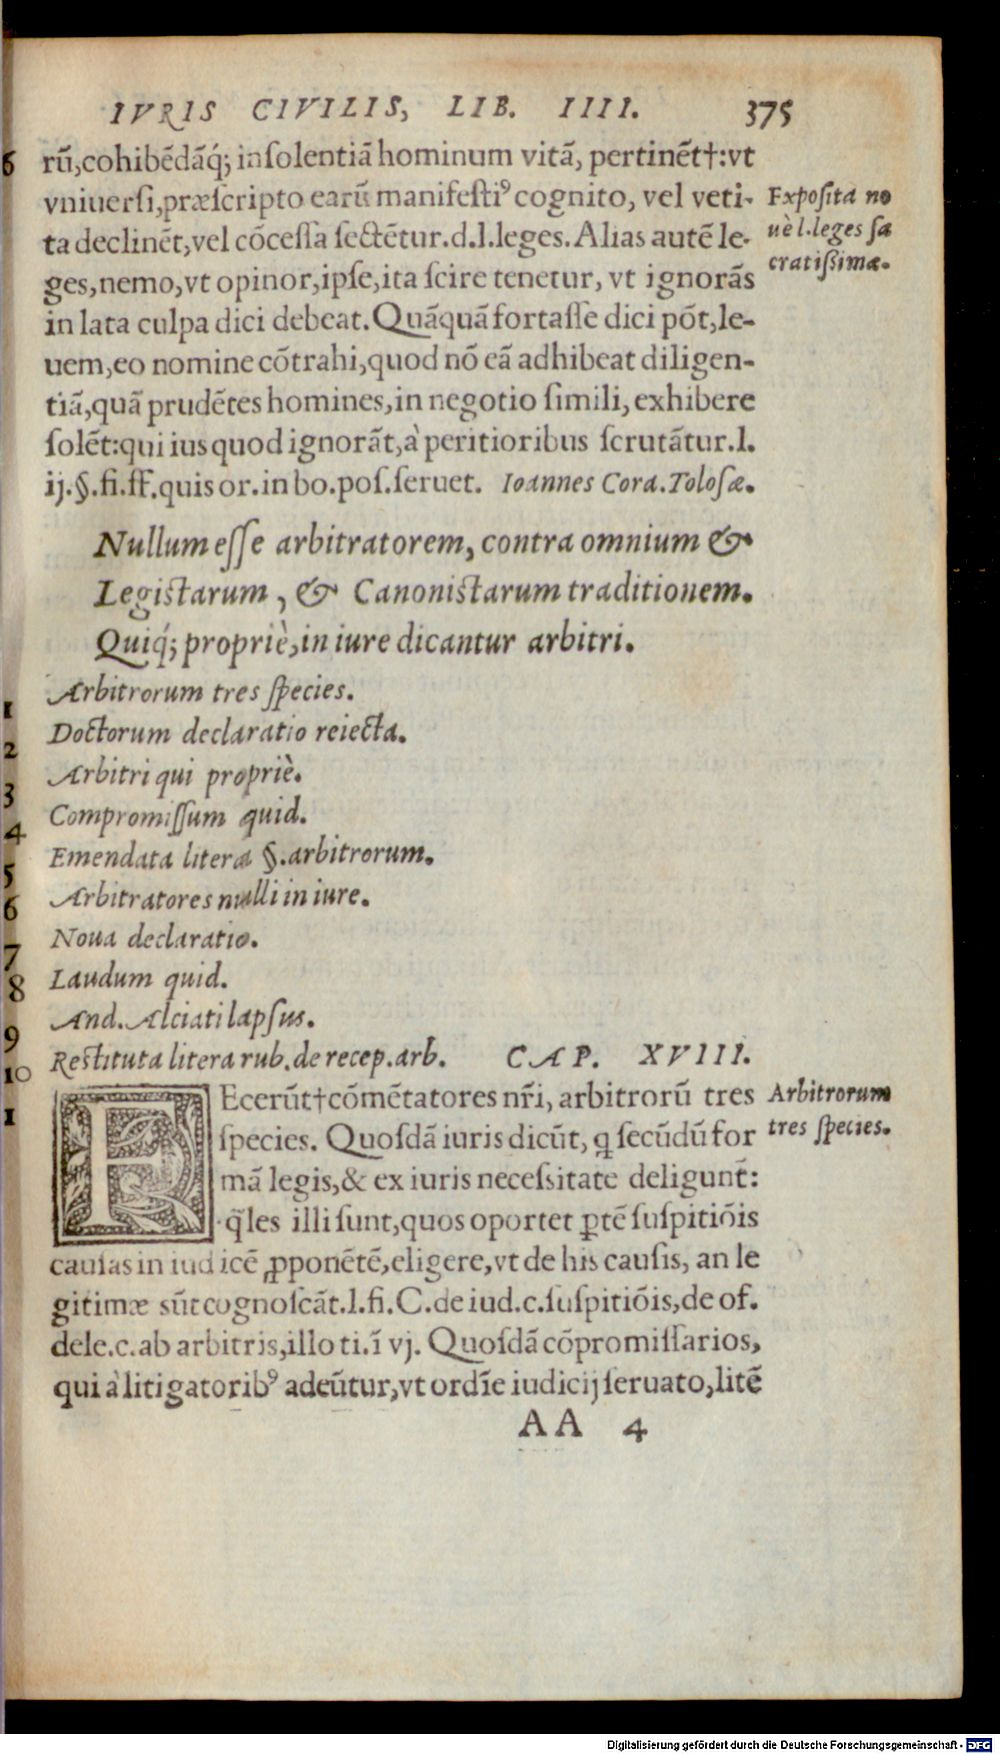 IVRIS CIVILIS, LIB. IIII. 375
6 rũ,cohibẽdãq́; insolentiã hominum vitã, pertinẽt†:vt
vniuersi,præscripto earũ manifestiꝰ cognito, vel veti-
ta declinẽt,vel cõcessa sectẽtur.d.l.leges.Alias autẽ le-
ges,nemo,vt opinor,ipse,ita scire tenetur, vt ignorãs
in lata culpa dici debeat.Quãquã fortasse dici põt,le-
uem,eo nomine cõtrahi,quod nõ eã adhibeat diligen-
tiã,quã prudẽtes homines,in negotio simili, exhibere
solẽt:qui ius quod ignorãt,à peritioribus scrutãtur.l.
ij.§.fi.ff.quis or.in bo.pos.seruet. Ioannes Cora.Tolosæ.
Exposita no
uè l.leges sa
cratissimæ.
Nullum esse arbitratorem, contra omnium &
Legistarum, & Canonistarum traditionem.
Quiq́; propriè,in iure dicantur arbitri.
1 Arbitrorum tres species.
2 Doctorum declaratio reiecta.
3 Arbitri qui propriè.
4 Compromissum quid.
5 Emendata litera §.arbitrorum.
6 Arbitratores nulli in iure.
7 Noua declaratio.
8 Laudum quid.
9 And.Alciati lapsus.
10 Restituta litera rub.de recep.arb. CAP. XVIII.
1 FEcerũt†cõmẽtatores nr̃i, arbitrorũ tres
species. Quosdã iuris dicũt, ꝗ secũdũ for
mã legis,& ex iuris necessitate deligunt̃:
q̃les illi sunt,quos oportet ꝑtẽ suspitiõis
causas in iudicẽ ꝓponẽtẽ,eligere,vt de his causis, an le
gitimæ sũt cognoscãt.l.fi.C.de iud.c.suspitiõis,de of.
dele.c.ab arbitris,illo ti.ĩ vj. Quosdã cõpromissarios,
qui à litigatoribꝰ adeũtur,vt ordĩe iudicij seruato,litẽ
Arbitrorum
tres species.
AA 4
Digitalisierung gefördert durch die Deutsche Forschungsgemeinschaft - DFG